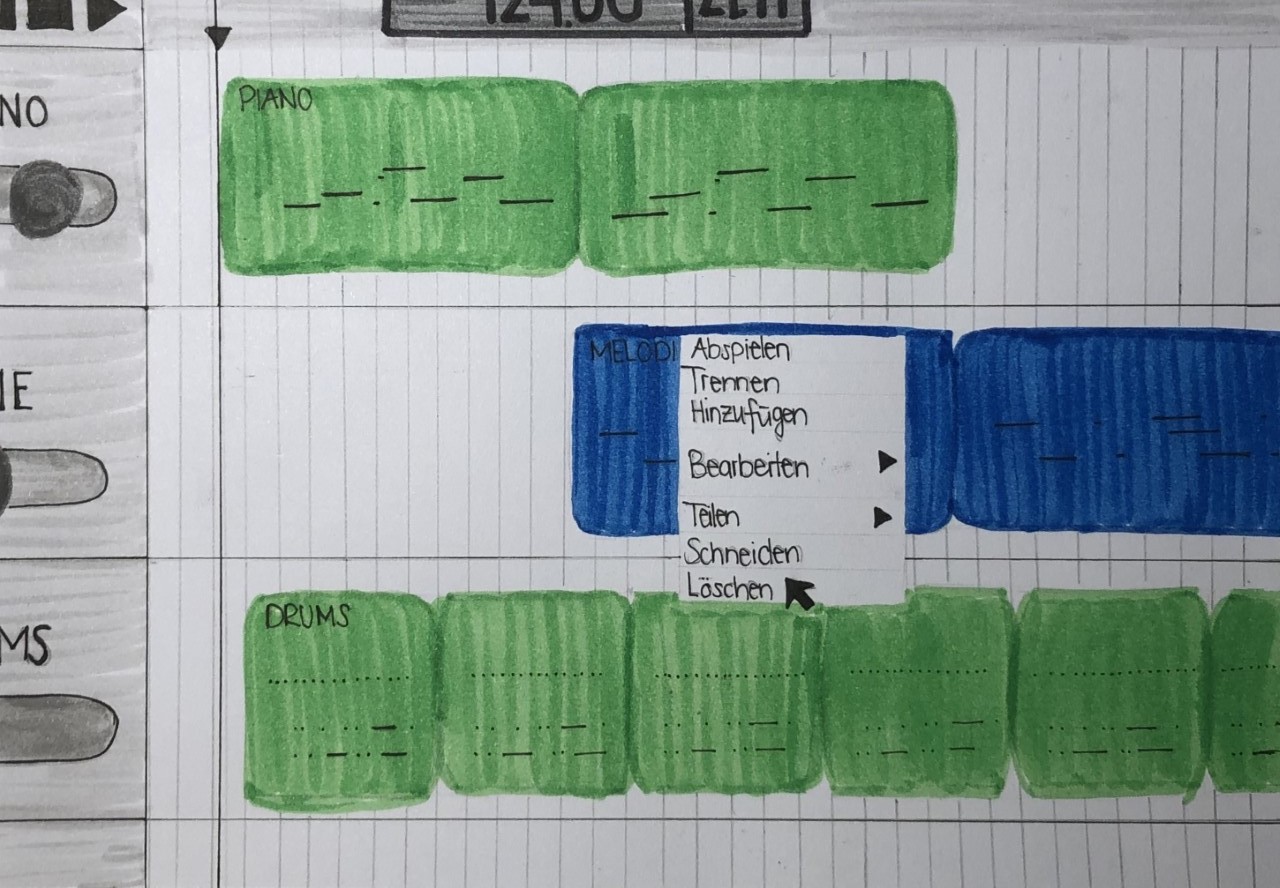 124.00
PIANO
NO
MELODI
Abspielen
Trennen
Hinzufügen
IE
Bearbeiten
Teilen
Schneiden
Löschen
DRUMS
MS